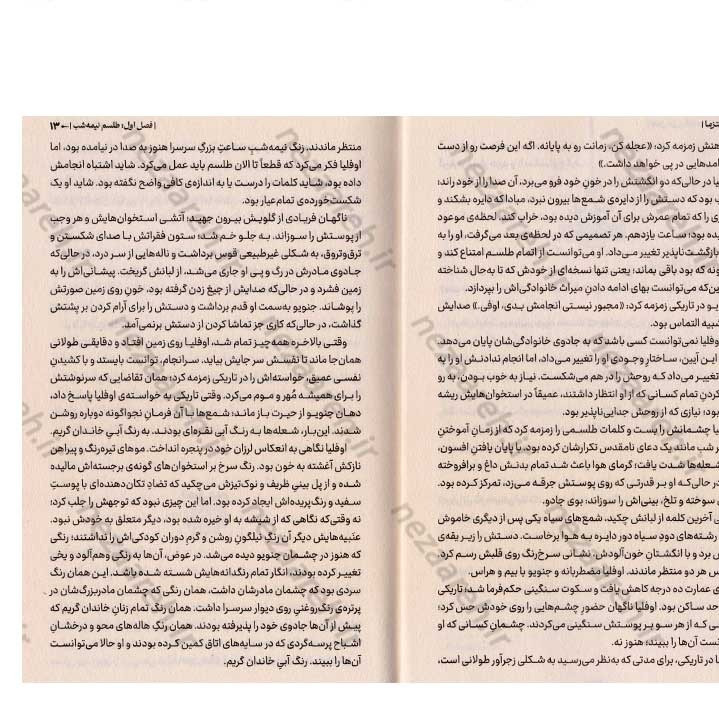 تنزما |
هنش زمزمه کرد: «عجله کن. زمانت رو به پایانه. اگه این فرصت رو از دست
امدهایی در پی خواهد داشت.»
یا در حالی‌که دو انگشتش را در خون خود فرو می‌برد، آن صدا را از خود راند؛
ب بود که دستش را از دایره‌ی شمع‌ها بیرون نبرد، مبادا که دایره بشکند و
ی را که تمام عمرش برای آن آموزش دیده بود، خراب کند. لحظه‌ی موعود
یده بود؛ ساعت یازدهم. هر تصمیمی که در لحظه‌ی بعد می‌گرفت، او را به
بازگشت‌ناپذیر تغییر می‌داد. او می‌توانست از اتمام طلسم امتناع کند و
ونه که بود باقی بماند؛ یعنی تنها نسخه‌ای از خودش که تا به‌حال شناخته
ین‌که می‌توانست بهای ادامه دادنِ میراث خانوادگی‌اش را بپردازد.
یو در تاریکی زمزمه کرد: «مجبور نیستی انجامش بدی، اوفی.» صدایش
شبیه التماس بود.
اوفلیا نمی‌توانست کسی باشد که به جادوی خانوادگی‌شان پایان می‌دهد.
این آیین، ساختارِ وجودی او را تغییر می‌داد، اما انجام ندادنش او را به
تغییر می‌داد کـه روحش را در هم می‌شکست. نیاز به خوب بودن، به رو
کردنِ تمام کسانی که از او انتظار داشتند، عمیقاً در استخوان‌هایش ریشه
بود؛ نیازی که از روحش جدایی‌ناپذیر بود.
لیا چشمانش را بست و کلمات طلسمی را زمزمه کرد که از زمـان آموختنِ
ر شب مانند یک دعای نامقدس تکرارشان کرده بود. با پایان یافتنِ افسون،
شعله‌ها شدت یافت؛ گرمای هوا باعث شد تمام بدنـش داغ و برافروخته
در حالی‌کـه او بـر قدرتـی که روی پوسـتش جرقـه مـی‌زد، تمرکز کـرده بود.
ی سوخته و تلخ، بینی‌اش را سوزاند؛ بوی جادو.
ی آخرین کلمه از لبانش چکید، شمع‌های سیاه یکی پس از دیگری خاموش
رشته‌های دودِ سیاه دور دایـره بـه هـوا برخاسـت. دستش را زیـر یقه‌ی
ش برد و با انگشتان خون‌آلودش، نشانی سرخ‌رنگ روی قلبش رسم کرد.
س هر دو منتظر ماندند. اوفلیا مضطربانه و جنویو با بیم و هراس.
ی عمارت ده درجه کاهش یافت و سکوت سنگینی حکم‌فرما شد؛ تاریکی
حد ساکن بود. اوفلیا ناگهان حضورِ چشم‌هایی را روی خودش حس کرد؛
ی کـه از هر سـو بـر پوسـتش سنگینی می‌کردند. چشمـانِ کسـانی که او
نست آن‌ها را ببیند؛ هنوز نه.
ا در تاریکی، برای مدتی که به‌نظر می‌رسید به شکلی زجرآور طولانی است،
| فصل اول: طلسم نیمه‌شب | ← ۱۳
منتظر ماندند. زنگ نیمه‌شبِ ساعتِ بزرگ سرسرا هنوز به صدا در نیامده بود، اما
اوفلیا فکر می‌کرد که قطعاً تا الان طلسم باید عمل می‌کرد. شاید اشتباه انجامش
داده بود، شاید کلمات را درست یا به اندازه‌ی کافی واضح نگفته بود. شاید او یک
شکست‌خورده‌ی تمام‌عیار بود.
ناگهان فریادی از گلویش بیـرون جهیـد؛ آتشـی استخوان‌هایش و هر وجب
از پوسـتش را سـوزاند. بـه جلـو خـم شـد؛ ستون فقراتش بـا صدای شکستن و
ترق‌وتروق، به شکلی غیرطبیعی قوس برداشت و ناله‌هایی از سرِ درد، در حالی‌که
جـادوی مـادرش در رگ و پـی او جـاری می‌شـد، از لبانش گریخت. پیشـانی‌اش را به
زمین فشرد و در حالی‌که صدایش از جیغ زدن گرفته بود، خونِ روی زمین صورتش
را پوشـاند. جنویو به‌سمت او قدم برداشت و دستش را برای آرام کردن بر پشتش
گذاشت، در حالی‌که کاری جز تماشا کردن از دستش برنمی‌آمد.
وقتـی بالاخـره همه‌چیز تمام شد، اوفلیا روی زمین افتـاد و دقایقـی طولانی
همان‌جا ماند تا نفسـش سـر جایش بیاید. سـرانجام، توانست بایستد و با کشیدن
نفسـی عمیق، خواسته‌اش را در تاریکی زمزمه کرد؛ همان تقاضایی که سرنوشتش
را برای همیشـه مُهر و مـوم می‌کرد. وقتی تاریکی به خواسـته‌ی اوفلیا پاسـخ داد،
دهـان جنویـو از حیـرت بـاز ماند؛ شمع‌ها بـا آن فرمـان نجواگونه دوباره روشـن
شدند. این‌بار، شعله‌ها بـه رنگـی آبـی نقره‌ای بودند. به رنگ آبیِ خاندان گریم.
اوفلیا نگاهی به انعکاس لرزان خود در پنجره انداخت. موهای تیره‌رنگ و پیراهن
نازکش آغشته به خون بود. رنگ سرخ بر استخوان‌های گونه‌ی برجسته‌اش مالیده
شـده و از پـل بینیِ ظریف و نوک‌تیزش می‌چکید که تضادِ تکان‌دهنده‌ای با پوستِ
سـفید و رنگ‌پریده‌اش ایجاد کرده بود. اما این چیزی نبود که توجهش را جلب کرد؛
نه وقتی‌که نگاهی که از شیشـه به او خیره شـده بود، دیگر متعلق به خودش نبود.
عنبیه‌هایش دیگر آن رنگِ نیلگونِ روشن و گرمِ دوران کودکی‌اش را نداشتند؛ رنگی
که هنوز در چشمـان جنویو دیده می‌شد. در عوض، آن‌ها به رنگی وهم‌آلود و یخی
تغییـر کرده بودنـد، انگار تمام رنگدانه‌هایش شسـته شده باشـد. ایـن همان رنگ
سردی بود که چشمان مادرشان داشت، همان رنگی که چشمان مادربزرگ‌شان در
پرتره‌ی رنگ‌روغنیِ روی دیوار سرسـرا داشت. همان رنگِ تمام زنانِ خاندان گریم که
پیـش از آن‌ها جادوی خود را پذیرفته بودند. همان رنگِ هاله‌های محو و درخشانِ
اشباح پرسه‌گردی که در سایه‌های اتاق کمین کرده بودند و او حالا می‌توانست
آن‌ها را ببیند. رنگ آبیِ خاندان گریم.